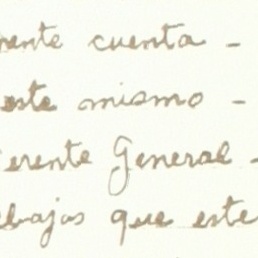 mente cuenta -
este mismo -
Gerente General -
ebajos que este